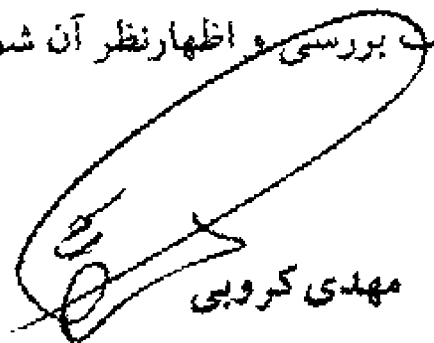 بررسی و اظهارنظر آن
مهدی کروبی